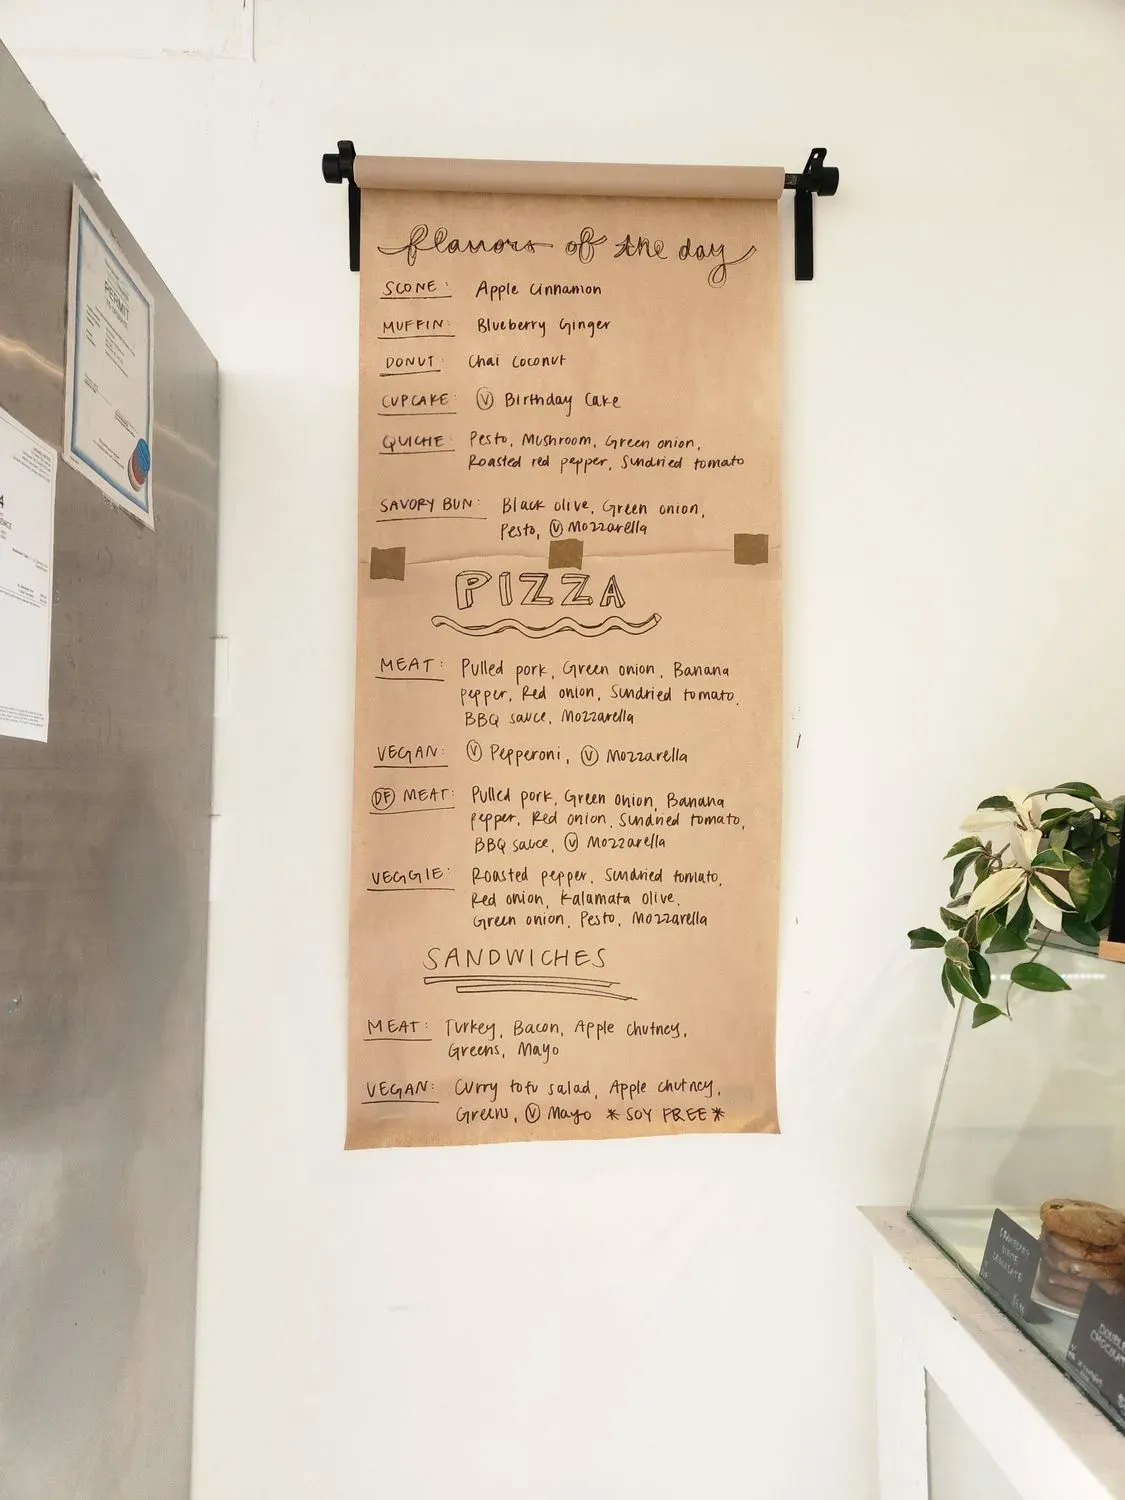 flavors of the day
SCONE: Apple Cinnamon
MUFFIN: Blueberry Ginger
DONUT: Chai Coconut
CUPCAKE: Ⓥ Birthday Cake
QUICHE: Pesto, Mushroom, Green onion,
Roasted red pepper, Sundried tomato
SAVORY BUN: Black olive, Green onion,
Pesto, Ⓥ Mozzarella
PIZZA
MEAT: Pulled pork, Green onion, Banana
pepper, Red onion, Sundried tomato,
BBQ sauce, Mozzarella
VEGAN: Ⓥ Pepperoni, Ⓥ Mozzarella
DF MEAT: Pulled pork, Green onion, Banana
pepper, Red onion, Sundried tomato,
BBQ sauce, Ⓥ Mozzarella
VEGGIE: Roasted pepper, Sundried tomato,
Red onion, Kalamata olive,
Green onion, Pesto, Mozzarella
SANDWICHES
MEAT: Turkey, Bacon, Apple chutney,
Greens, Mayo
VEGAN: Curry tofu salad, Apple chutney,
Greens, Ⓥ Mayo *SOY FREE*
PERMIT
TO OPERATE
WHITE
CHOCOLATE
DOUBLE